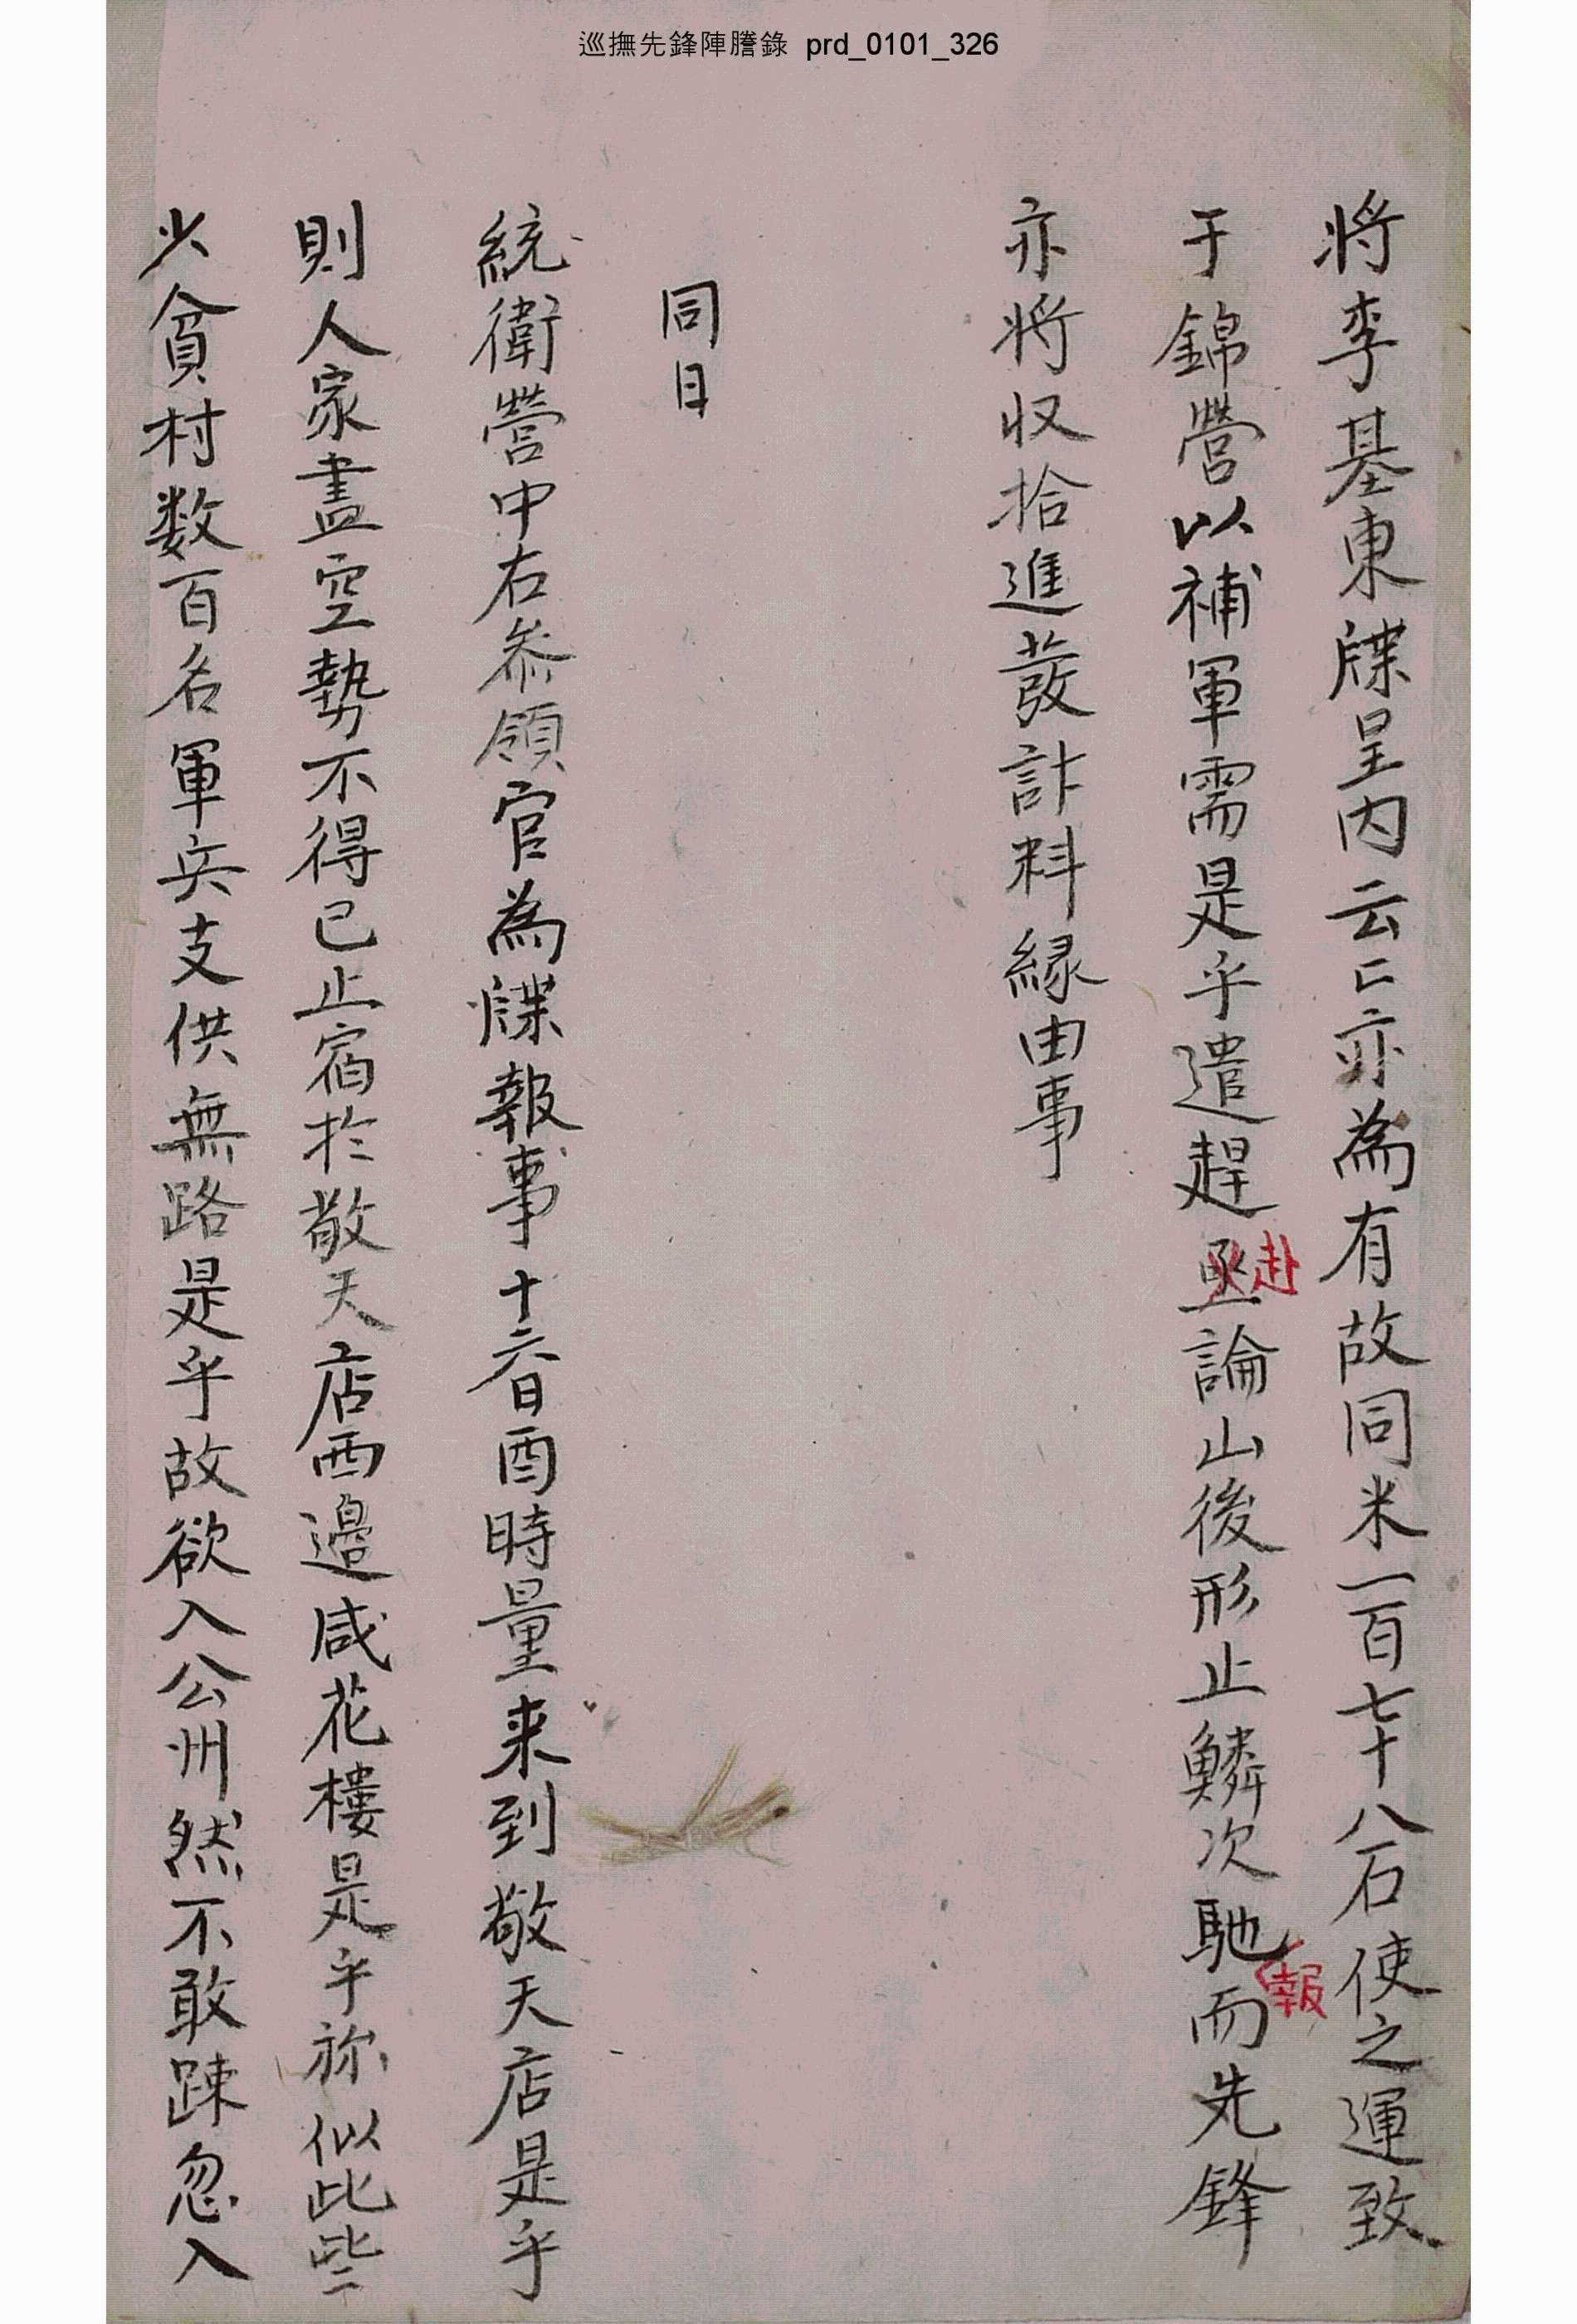 巡撫先鋒陣謄錄 prd_0101_326
将李基東牒呈内云〻亦為有故同米一百七十八石使之運致
于錦營以補軍需是乎遣趕亟論山後形止鱗次馳而先鋒
赴
報
亦将収拾進發計料緣由事
同日
統衛營中右叅領官為牒報事十六日酉時量来到敬天店是乎
則人家盡空勢不得已止宿於敬天店西邊咸花樓是乎旀似此些
少貧村数百名軍兵支供無路是乎故欲入公州然不敢踈忽入